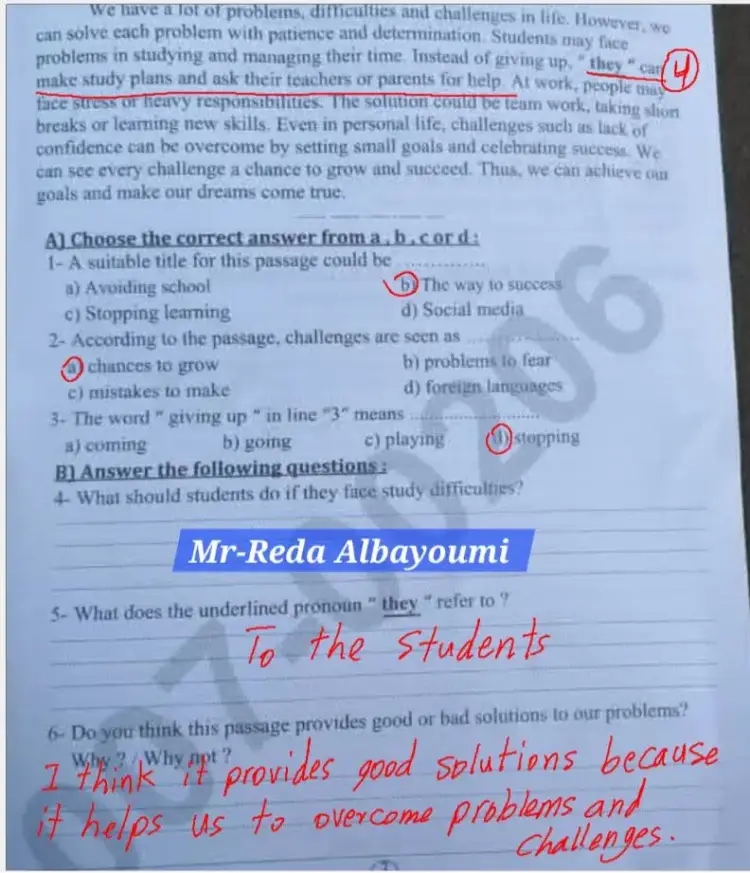 We have a lot of problems, difficulties and challenges in life. However, we
can solve each problem with patience and determination. Students may face
problems in studying and managing their time. Instead of giving up, " they " can
4
make study plans and ask their teachers or parents for help. At work, people may
face stress or heavy responsibilities. The solution could be team work, taking short
breaks or learning new skills. Even in personal life, challenges such as lack of
confidence can be overcome by setting small goals and celebrating success. We
can see every challenge a chance to grow and succeed. Thus, we can achieve our
goals and make our dreams come true.
A) Choose the correct answer from a , b , c or d :
1- A suitable title for this passage could be ..............
a) Avoiding school b) The way to success
c) Stopping learning d) Social media
2- According to the passage, challenges are seen as ......................
a) chances to grow b) problems to fear
c) mistakes to make d) foreign languages
3- The word " giving up " in line "3" means ......................
a) coming b) going c) playing d) stopping
B) Answer the following questions :
4- What should students do if they face study difficulties?
Mr-Reda Albayoumi
5- What does the underlined pronoun " they " refer to ?
To the Students
6- Do you think this passage provides good or bad solutions to our problems?
Why ? / Why not ?
I think it provides good solutions because
it helps us to overcome problems and
challenges.
007-00206